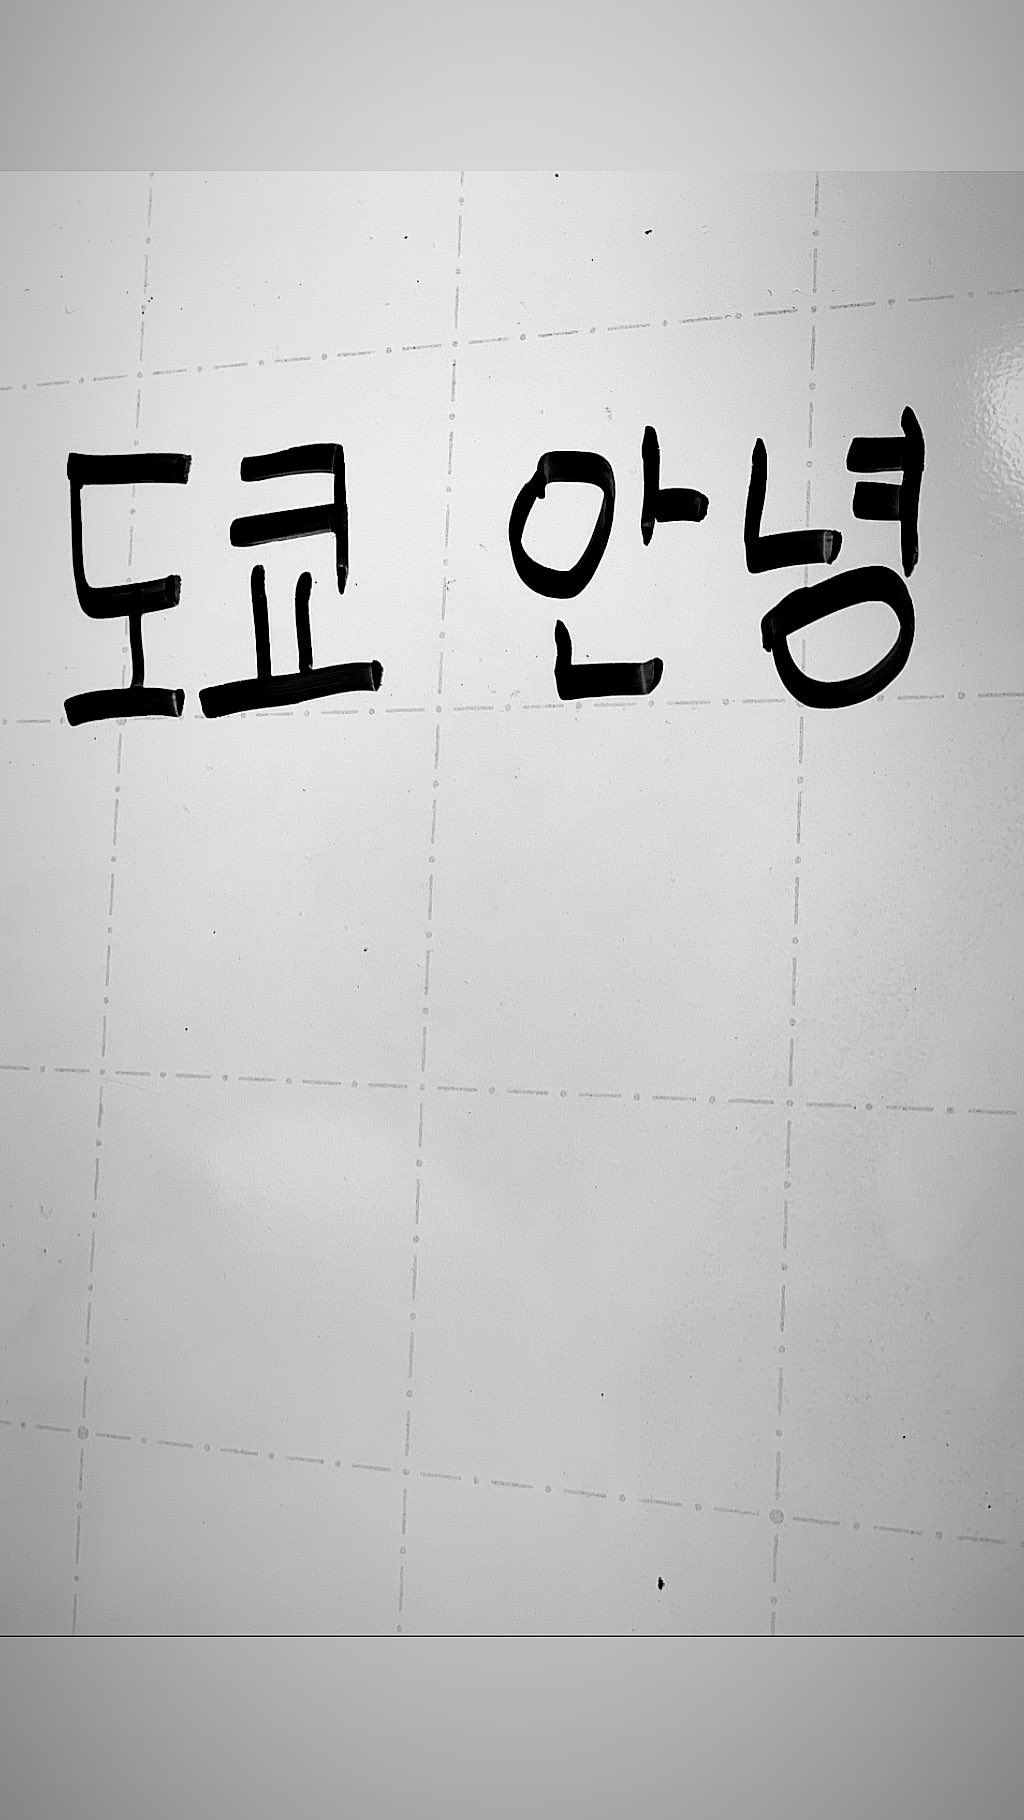 도쿄 안녕